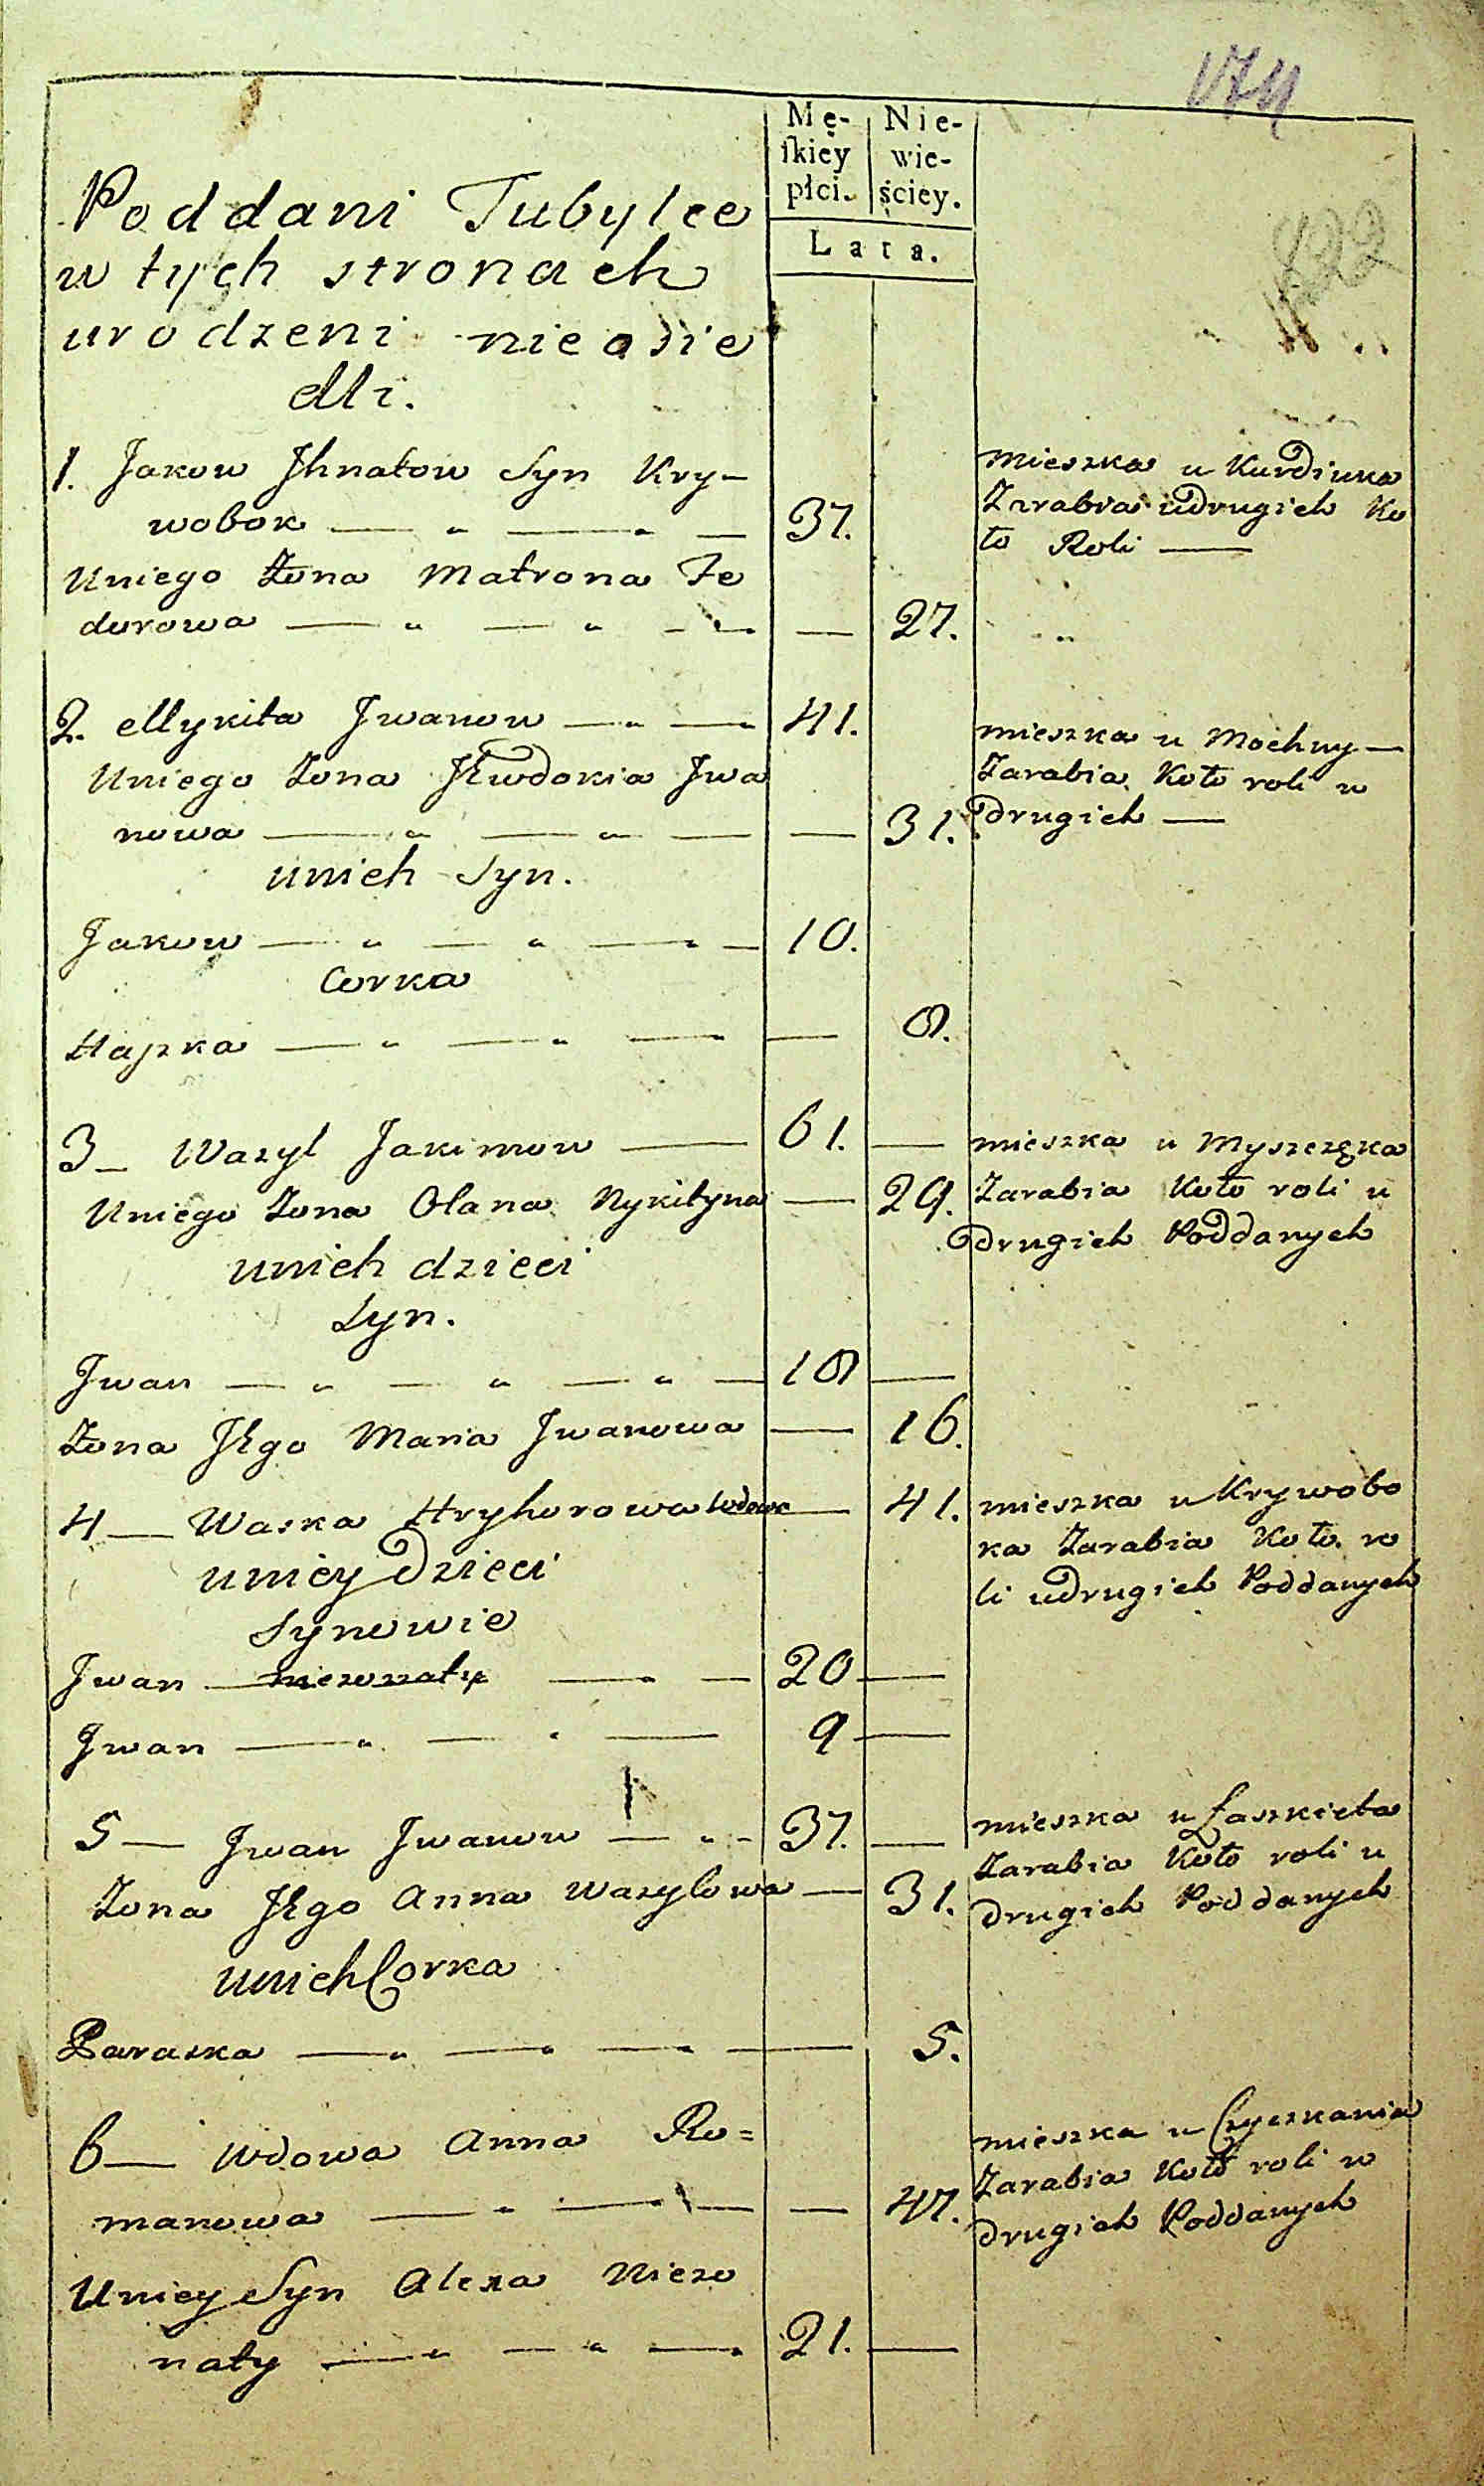 174
122
Mę- Nie-
ſkiey wie-
płci. ściey.
Lata.
Poddani Tubylce
w tych stronach
urodzeni nie osie
dli.
1. Jakow Jhnatow Syn Kry-
wobok — " — " — 37.
mieszka u Kurdiuka
Zarabia u drugich Ko
ło Roli —
Uniego Żona Matrona Fe
durowa — " — " — — 27.
2. Mykita Jwanow — " — 41.
mieszka u Mochny —
Zarabia Koło roli u
drugich —
Uniego Zona Jewdokia Jwa
nowa — " — " — — 31.
unich Syn.
Jakow — " — " — " — 10.
Corka
Hapka — " — " — — 8.
3 — Wasyl Jakimow — 61. —
mieszka u Myszczęka
Uniego Zona Olana Nykityna — 29.
Zarabia Koło roli u
drugich Poddanych
unich dzieci
Syn.
Jwan — " — " — " — 18 —
Żona Jego Maria Jwanowa — 16.
4 — Waska Hryhorowa wdowa — 41.
mieszka u Krywobo
ka Zarabia Koło ro
li u drugich Poddanych
uniey Dzieci
Synowie
Jwan — niezonaty — " — 20 —
Jwan — " — " — 9 —
5 — Jwan Jwanow — " — 37. —
mieszka u Laszkieta
Zarabia Koło roli u
drugich Poddanych
Zona Jego Anna Wasylowa — 31.
unich Corka
Paraska — " — " — " — 5.
6 — Wdowa Anna Ro=
manowa — " — — — 47.
mieszka u
Zarabia Koło roli u
drugich Poddanych
Uniey Syn Alexa Niezo
naty — " — " — 21. —